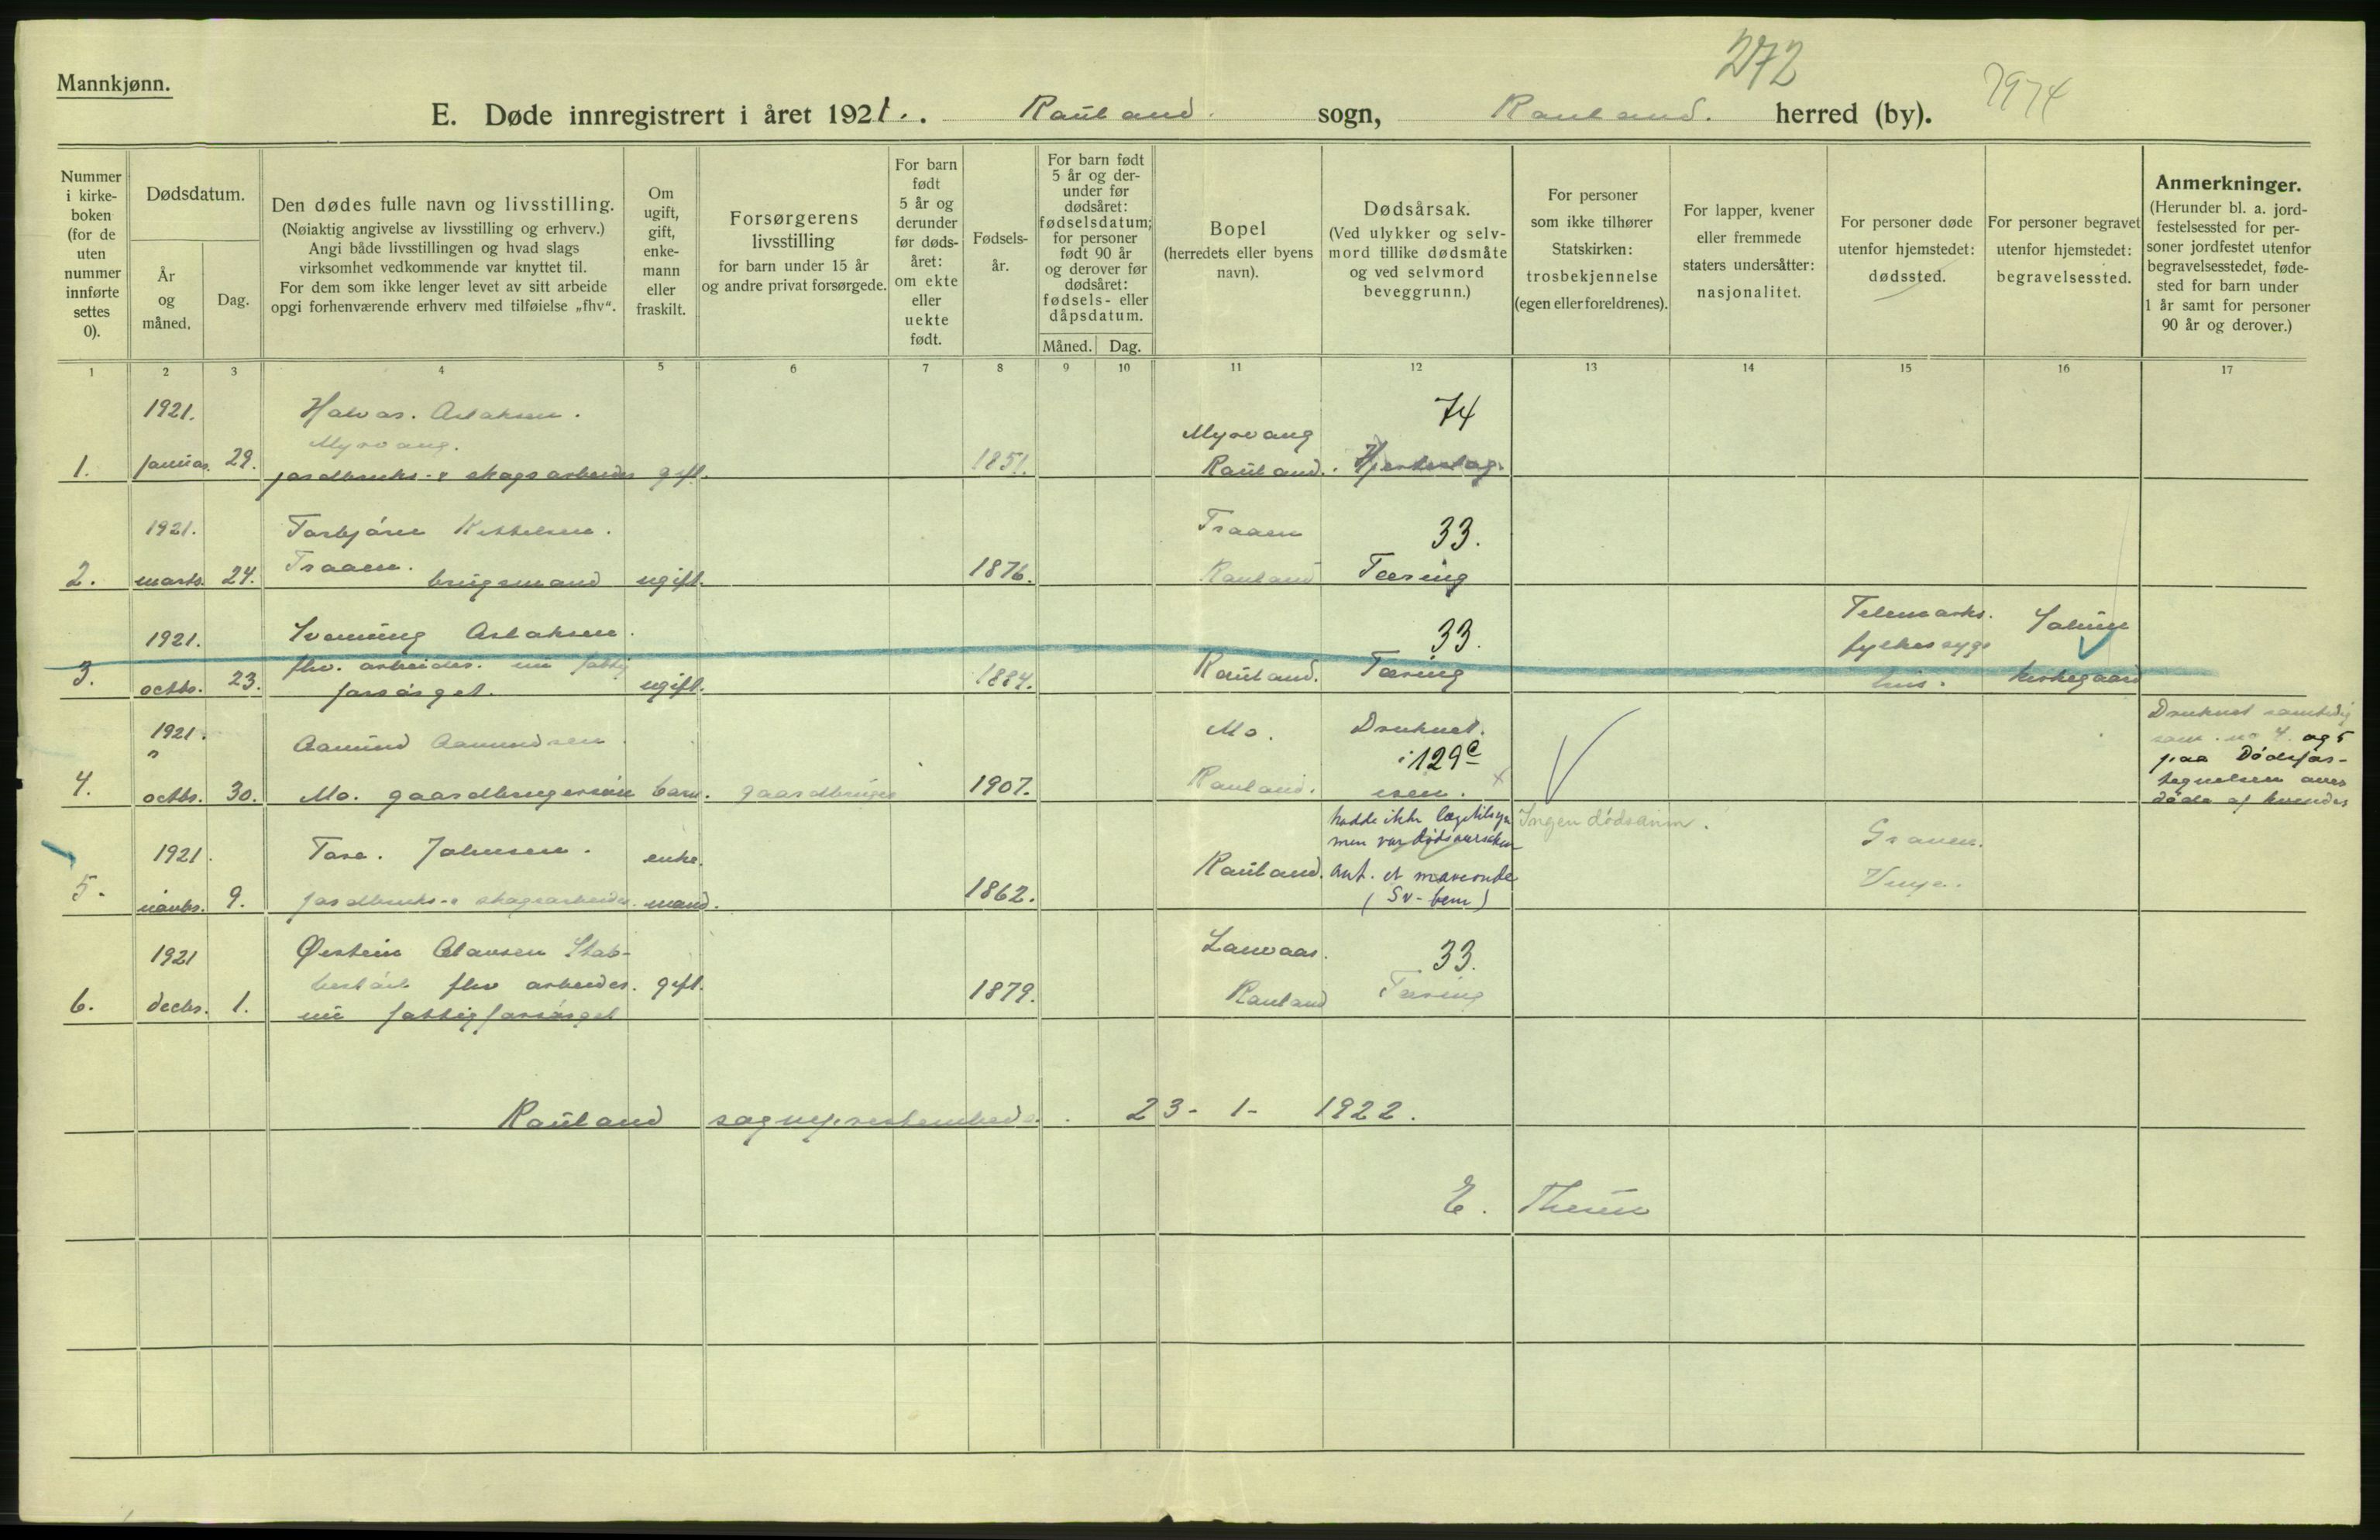 272
7974
Mannkjønn.
E. Døde innregistrert i året 1921. Rauland. sogn, Rauland. herred (by).
Nummer i kirkeboken (for de uten nummer innførte settes 0).
Dødsdatum.
År og måned.
Dag.
Den dødes fulle navn og livsstilling.
(Nøiaktig angivelse av livsstilling og erhverv.)
Angi både livsstillingen og hvad slags
virksomhet vedkommende var knyttet til.
For dem som ikke lenger levet av sitt arbeide
opgi forhenværende erhverv med tilføielse „fhv“.
Om ugift, gift, enkemann eller fraskilt.
Forsørgerens
livsstilling
for barn under 15 år
og andre privat forsørgede.
For barn født 5 år og derunder før dødsåret: om ekte eller uekte født.
Fødselsår.
For barn født
5 år og der-
under før
dødsåret:
fødselsdatum;
for personer
født 90 år
og derover før
dødsåret:
fødsels- eller
dåpsdatum.
Måned. Dag.
Bopel
(herredets eller byens
navn).
Dødsårsak.
(Ved ulykker og selv-
mord tillike dødsmåte
og ved selvmord
beveggrunn.)
For personer
som ikke tilhører
Statskirken:
trosbekjennelse
(egen eller foreldrenes).
For lapper, kvener
eller fremmede
staters undersåtter:
nasjonalitet.
For personer døde
utenfor hjemstedet:
dødssted.
For personer begravet
utenfor hjemstedet:
begravelsessted.
Anmerkninger.
(Herunder bl. a. jord-
festelsessted for per-
soner jordfestet utenfor
begravelsesstedet, føde-
sted for barn under
1 år samt for personer
90 år og derover.)
1 2 3 4 5 6 7 8 9 10 11 12 13 14 15 16 17
1921. Halvor. Aslaksen. 74
Myrvang. Myrvang
1. Januar. 29. jordbruks- & skogsarbeider gift. 1851. Rauland. Hjerteslag.
1921. Torbjörn Kittelsen. Traaen 33.
Traaen.
2. marts. 24. brugsmand ugift. 1876. Rauland Tæring
1921. Svenning Aslaksen. 33. Telemarks. Solum
fhv. arbeider. nu fattig fylkessyge
3. octbr. 23. forsörget. ugift. 1884. Rauland. Tæring hus. kirkegaard
1921. Aamund Aamundsen. Mo. Druknet. Druknet samtidig
i 129c som no 4. og 5
4. octbr. 30. Mo. gaardbrugersön barn. gaardbruger 1907. Rauland. isen. x paa Dödsfor-
tegnelsen over
döde af kvinder
hadde ikke lægetilsyn Ingen dödsanm.
men var dödsaarsaken
1921. Tore. Johnsen. enke. Graven.
5. novbr. 9. jordbruks- & skogsarbeider. mand. 1862. Rauland. ant. et maveonde Vinje.
(Sv-bem)
1921 Øistein Olavsen Stab- Lauvaas. 33.
fhv arbeider. gift.
6. decbr. 1. nu fattigforsörget 1879. Rauland Tæring
Rauland sogneprestembede. 23- 1- 1922.
E.